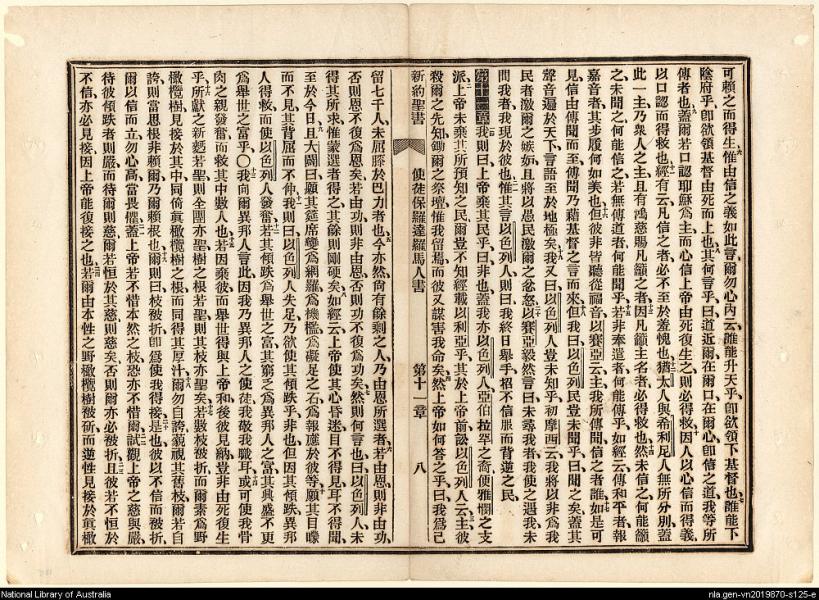 可賴之而得生惟由信之義如此言爾勿心內云誰能升天乎卽欲領下基督也誰能下
陰府乎卽欲領基督由死而上也其何言乎曰道近爾在爾口在爾心卽信之道我等所
傳者也蓋爾若口認耶穌爲主而心信上帝由死復生之則必得救因人以心信而得義
以口認而得救也經有云凡信之者必不至於羞愧也猶太人與希利尼人無所分別蓋
此一主乃衆人之主且有鴻慈賜凡籲之者因凡籲主名者必得救也然未信之何能籲
之未聞之何能信之若無傳道者何能聞乎若非奉遣者何能傳乎如經云傳和平者報
嘉音者其步履何如美也但彼非皆聽從福音以賽亞云主我所傳聞信之者誰如是可
見信由傳聞而至傳聞乃藉基督之言而來但我曰以色列民豈未聞乎曰聞之矣蓋其
聲音遍於天下言語至於地極矣我又曰以色列人豈未知乎初摩西云我將以非爲我
民者激爾之嫉妬且將以愚民激爾之忿怒以賽亞毅然言曰未尋我者我使之遇我未
問我者我現於彼也惟其言以色列人則曰我終日舉手招不信服而背逆之民
第十一章我則曰上帝棄其民乎曰非也蓋我亦以色列人亞伯拉罕之裔便雅憫之支
派上帝未棄其所預知之民爾豈不知經載以利亞乎其於上帝前訟以色列人云主彼
殺爾之先知鋤爾之祭壇惟我留焉而彼又謀害我命矣然上帝如何答之乎曰我爲己
新約聖書 使徒保羅達羅馬人書 第十一章 八
留七千人未屈膝於巴力者也今亦然尙有餘剩之人乃由恩所選者若由恩則非由功
否則恩不復爲恩矣若由功則非由恩否則功不復爲功矣然則何言也曰以色列人未
得其所求惟蒙選者得之其餘則剛硬矣如經云上帝使其心昏迷目不得見耳不得聞
至於今日且大闢曰願其筵席變爲網羅爲機檻爲礙足之石爲報應於彼等願其目矇
而不見其背屈而不伸我則曰以色列人失足乃欲使其傾跌乎非也但因其傾跌異邦
人得救而使以色列人發奮若其傾跌爲舉世之富其窮乏爲異邦人之富其興盛不更
爲舉世之富乎〇我向爾異邦人言此因我乃異邦人之使徒我敬我職耳或可使我骨
肉之親發奮而救其中數人也若因棄彼而舉世得與上帝和後彼見納豈非由死復生
乎所獻之新麪若聖則全團亦聖樹之根若聖則其枝亦聖矣若數枝被折而爾素爲野
橄欖樹見接於其中同倚眞橄欖樹之根而同得其厚汁爾勿自誇藐視其舊枝爾若自
誇則當思根非賴爾乃爾賴根也爾則曰枝被折卽爲使我得接是也彼以不信而被折
爾以信而立勿心高當畏懼蓋上帝若不惜本然之枝恐亦不惜爾試觀上帝之慈與嚴
待彼傾跌者則嚴而待爾則慈爾若恒於其慈則慈矣否則爾亦必被折且彼若不恒於
不信亦必見接因上帝能復接之也若爾由本性之野橄欖樹被斫而逆性見接於眞橄
National Library of Australia
nla.gen-vn2019870-s125-e